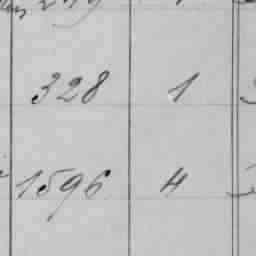 328 1
1596 4